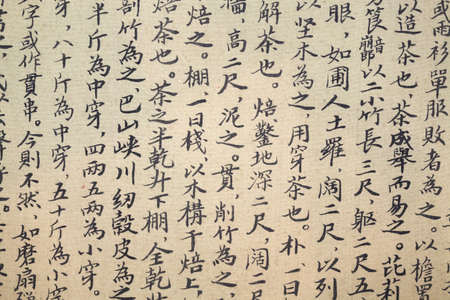 或雨衫單服敗者為之。以檐
以造茶也，茶成舉而易之。芘莉
篣筤以二小竹長三尺，軀二尺五
眼，如圃人土羅，闊二尺以列
以坚木為之，用穿茶也。朴，一曰
解茶也。焙鑿地深二尺，闊二
牆，高二尺，泥之。貫，削竹為之
焙之。棚，一曰棧，以木構于焙上，
也。茶之半乾升下棚，全乾
剖竹為之，巴山峡川紉穀皮為之
半斤為中穿，四兩五兩為小穿。
穿，八十斤為中穿，五十斤為小
字或作貫串。今則不然，如磨扇彈